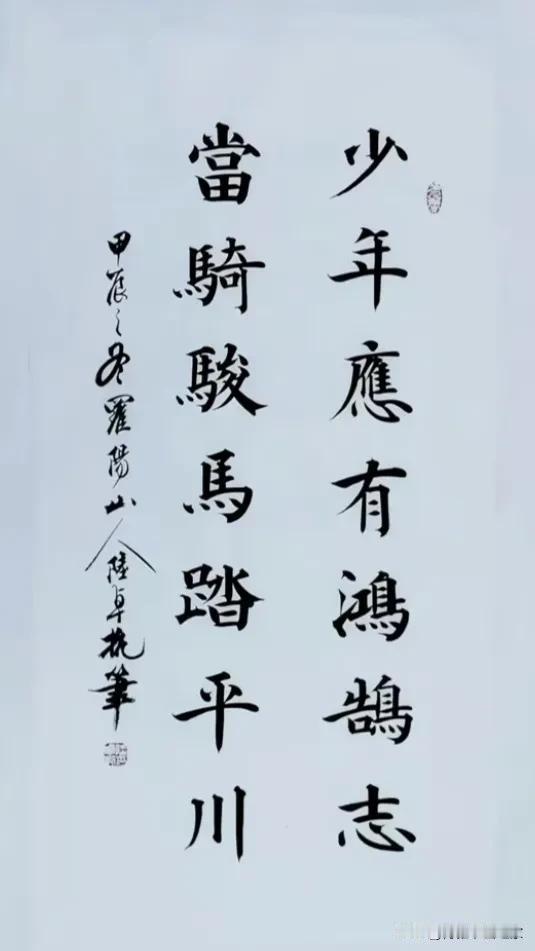 少年應有鴻鵠志
當騎駿馬踏平川
甲辰之冬羅陽山人陸卓執筆